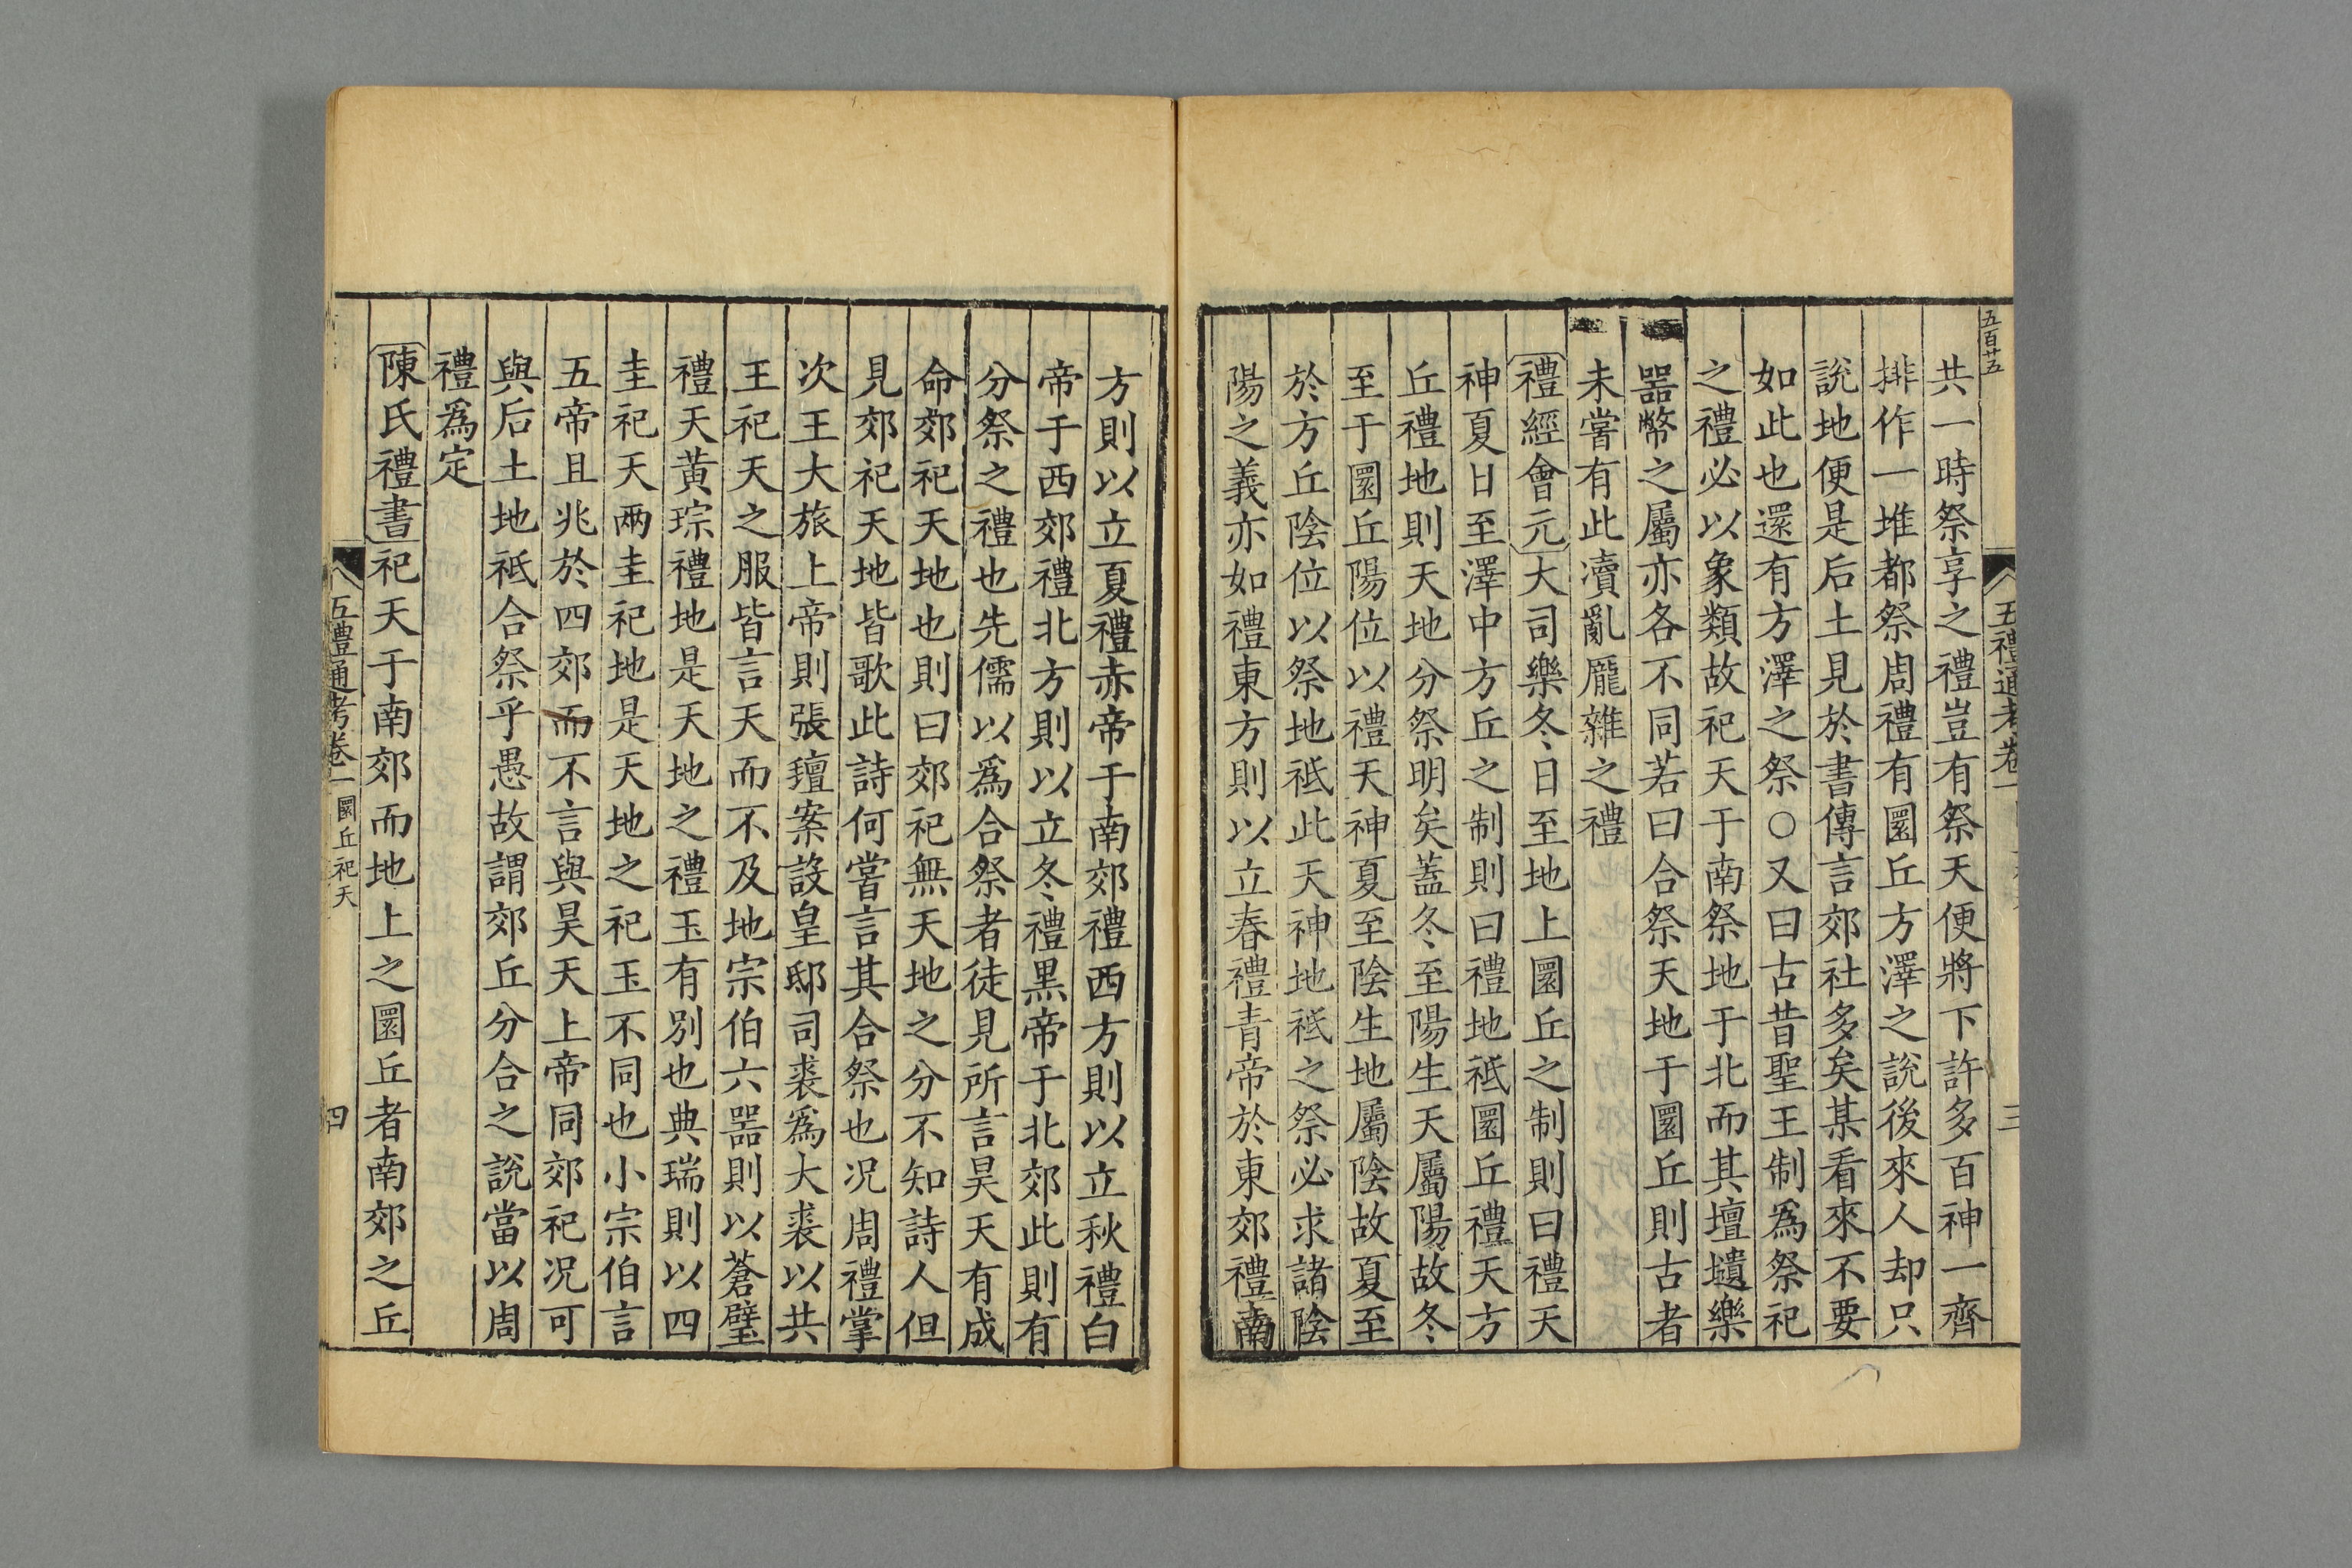 五百廿五
五禮通考卷一
三
共一時祭享之禮豈有祭天便將下許多百神一齊
排作一堆都祭周禮有圜丘方澤之說後來人却只
說地便是后土見於書傳言郊社多矣某看來不要
如此也還有方澤之祭○又曰古昔聖王制爲祭祀
之禮必以象類故祀天于南祭地于北而其壇壝樂
噐幣之屬亦各不同若曰合祭天地于圜丘則古者
未嘗有此凟亂龎雜之禮
禮經會元大司樂冬日至地上圜丘之制則曰禮天
神夏日至澤中方丘之制則曰禮地祗圜丘禮天方
丘禮地則天地分祭明矣蓋冬至陽生天屬陽故冬
至于圜丘陽位以禮天神夏至陰生地屬陰故夏至
於方丘陰位以祭地祗此天神地祗之祭必求諸陰
陽之義亦如禮東方則以立春禮青帝於東郊禮南
方則以立夏禮赤帝于南郊禮西方則以立秋禮白
帝于西郊禮北方則以立冬禮黒帝于北郊此則有
分祭之禮也先儒以爲合祭者徒見所言昊天有成
命郊祀天地也則曰郊祀無天地之分不知詩人但
見郊祀天地皆歌此詩何嘗言其合祭也况周禮掌
次王大旅上帝則張氊案設皇邸司裘爲大裘以共
王祀天之服皆言天而不及地宗伯六噐則以蒼璧
禮天黄琮禮地是天地之禮玉有別也典瑞則以四
圭祀天兩圭祀地是天地之祀玉不同也小宗伯言
五帝且兆於四郊而不言與昊天上帝同郊祀况可
與后土地祗合祭乎愚故謂郊丘分合之說當以周
禮爲定
陳氏禮書祀天于南郊而地上之圜丘者南郊之丘
五禮通考卷一 圜丘祀天
四